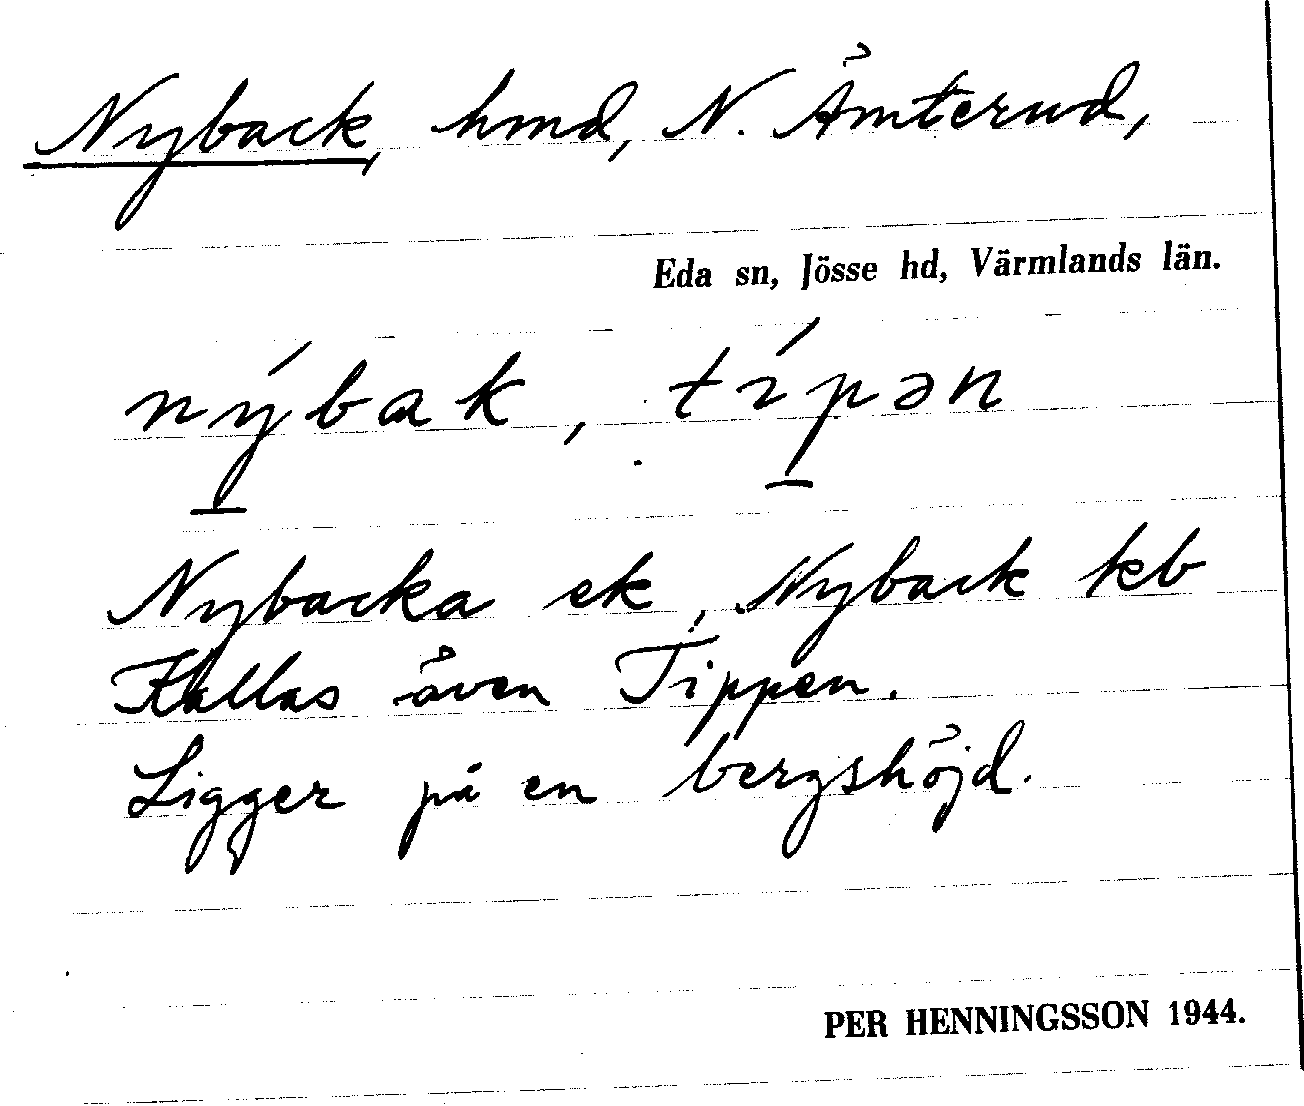 Nyback, hmd, N. Ämterud,
Eda sn, Jösse hd, Värmlands län.
nýbak, típən
Nybacka ek, Nyback kb
Kallas även Tippen.
Ligger på en bergshöjd.
PER HENNINGSSON 1944.